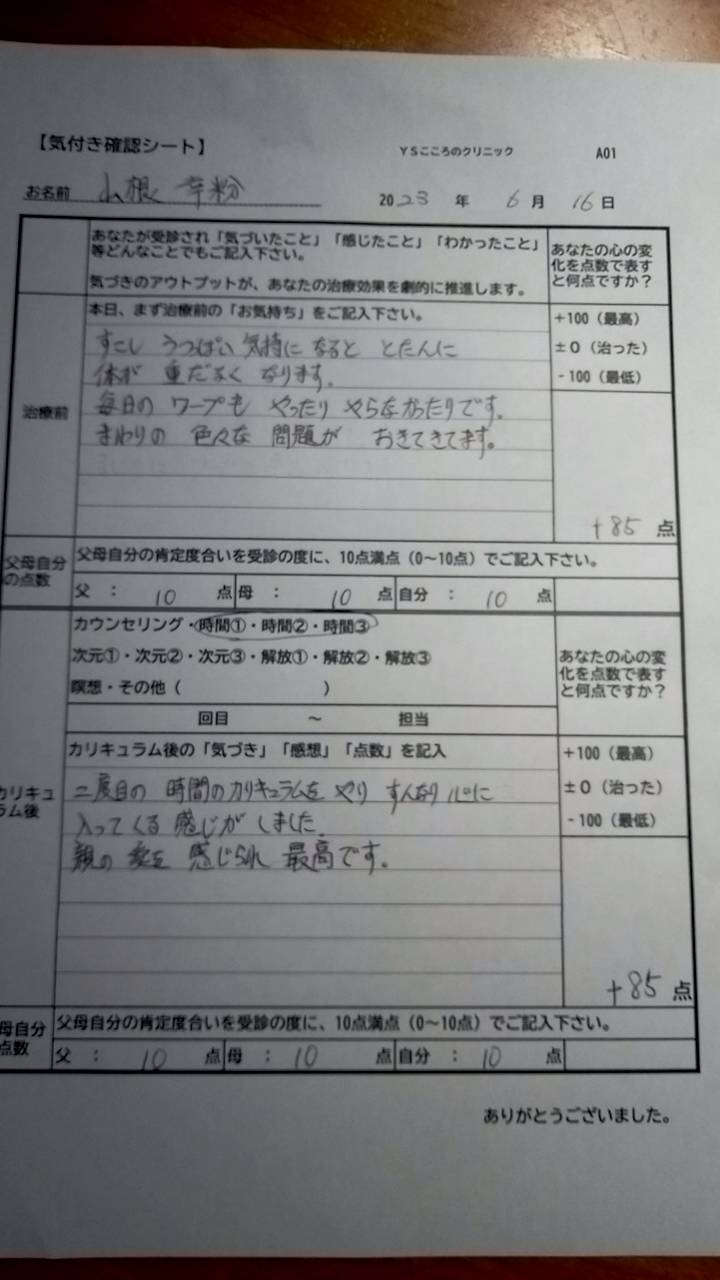 【気付き確認シート】
YSこころのクリニック
A01
お名前 山根 幸粉
2023年 6月 16日
あなたが受診され「気づいたこと」「感じたこと」「わかったこと」
等どんなことでもご記入下さい。
気づきのアウトプットが、あなたの治療効果を劇的に推進します。
あなたの心の変
化を点数で表す
と何点ですか？
治療前
本日、まず治療前の「お気持ち」をご記入下さい。
すこし うつっぽい 気持に なると とたんに
体が 重だるく なります。
毎日の ワープも やったり やらなかったりです。
まわりの 色々な 問題が おきてきてます。
+100（最高）
±0（治った）
-100（最低）
+85 点
父母自分
の点数
父母自分の肯定度合いを受診の度に、10点満点（0～10点）でご記入下さい。
父 : 10 点 母 : 10 点 自分 : 10 点
カウンセリング・時間①・時間②・時間③
次元①・次元②・次元③・解放①・解放②・解放③
瞑想・その他（ ）
回目 ～ 担当
あなたの心の変
化を点数で表す
と何点ですか？
カリキュ
ラム後
カリキュラム後の「気づき」「感想」「点数」を記入
二度目の 時間のカリキュラムを やり すんなり 心に
入ってくる 感じが しました。
親の 愛を 感じられ 最高です。
+100（最高）
±0（治った）
-100（最低）
+85 点
母自分
点数
父母自分の肯定度合いを受診の度に、10点満点（0～10点）でご記入下さい。
父 : 10 点 母 : 10 点 自分 : 10 点
ありがとうございました。